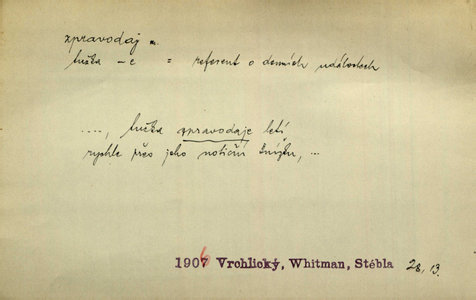 zpravodaj m.
tužka –e = referent o denních událostech
...., tužka zpravodaje letí
rychle přes jeho notiční knížku, ...
1906 Vrchlický, Whitman, Stébla 28, 13.